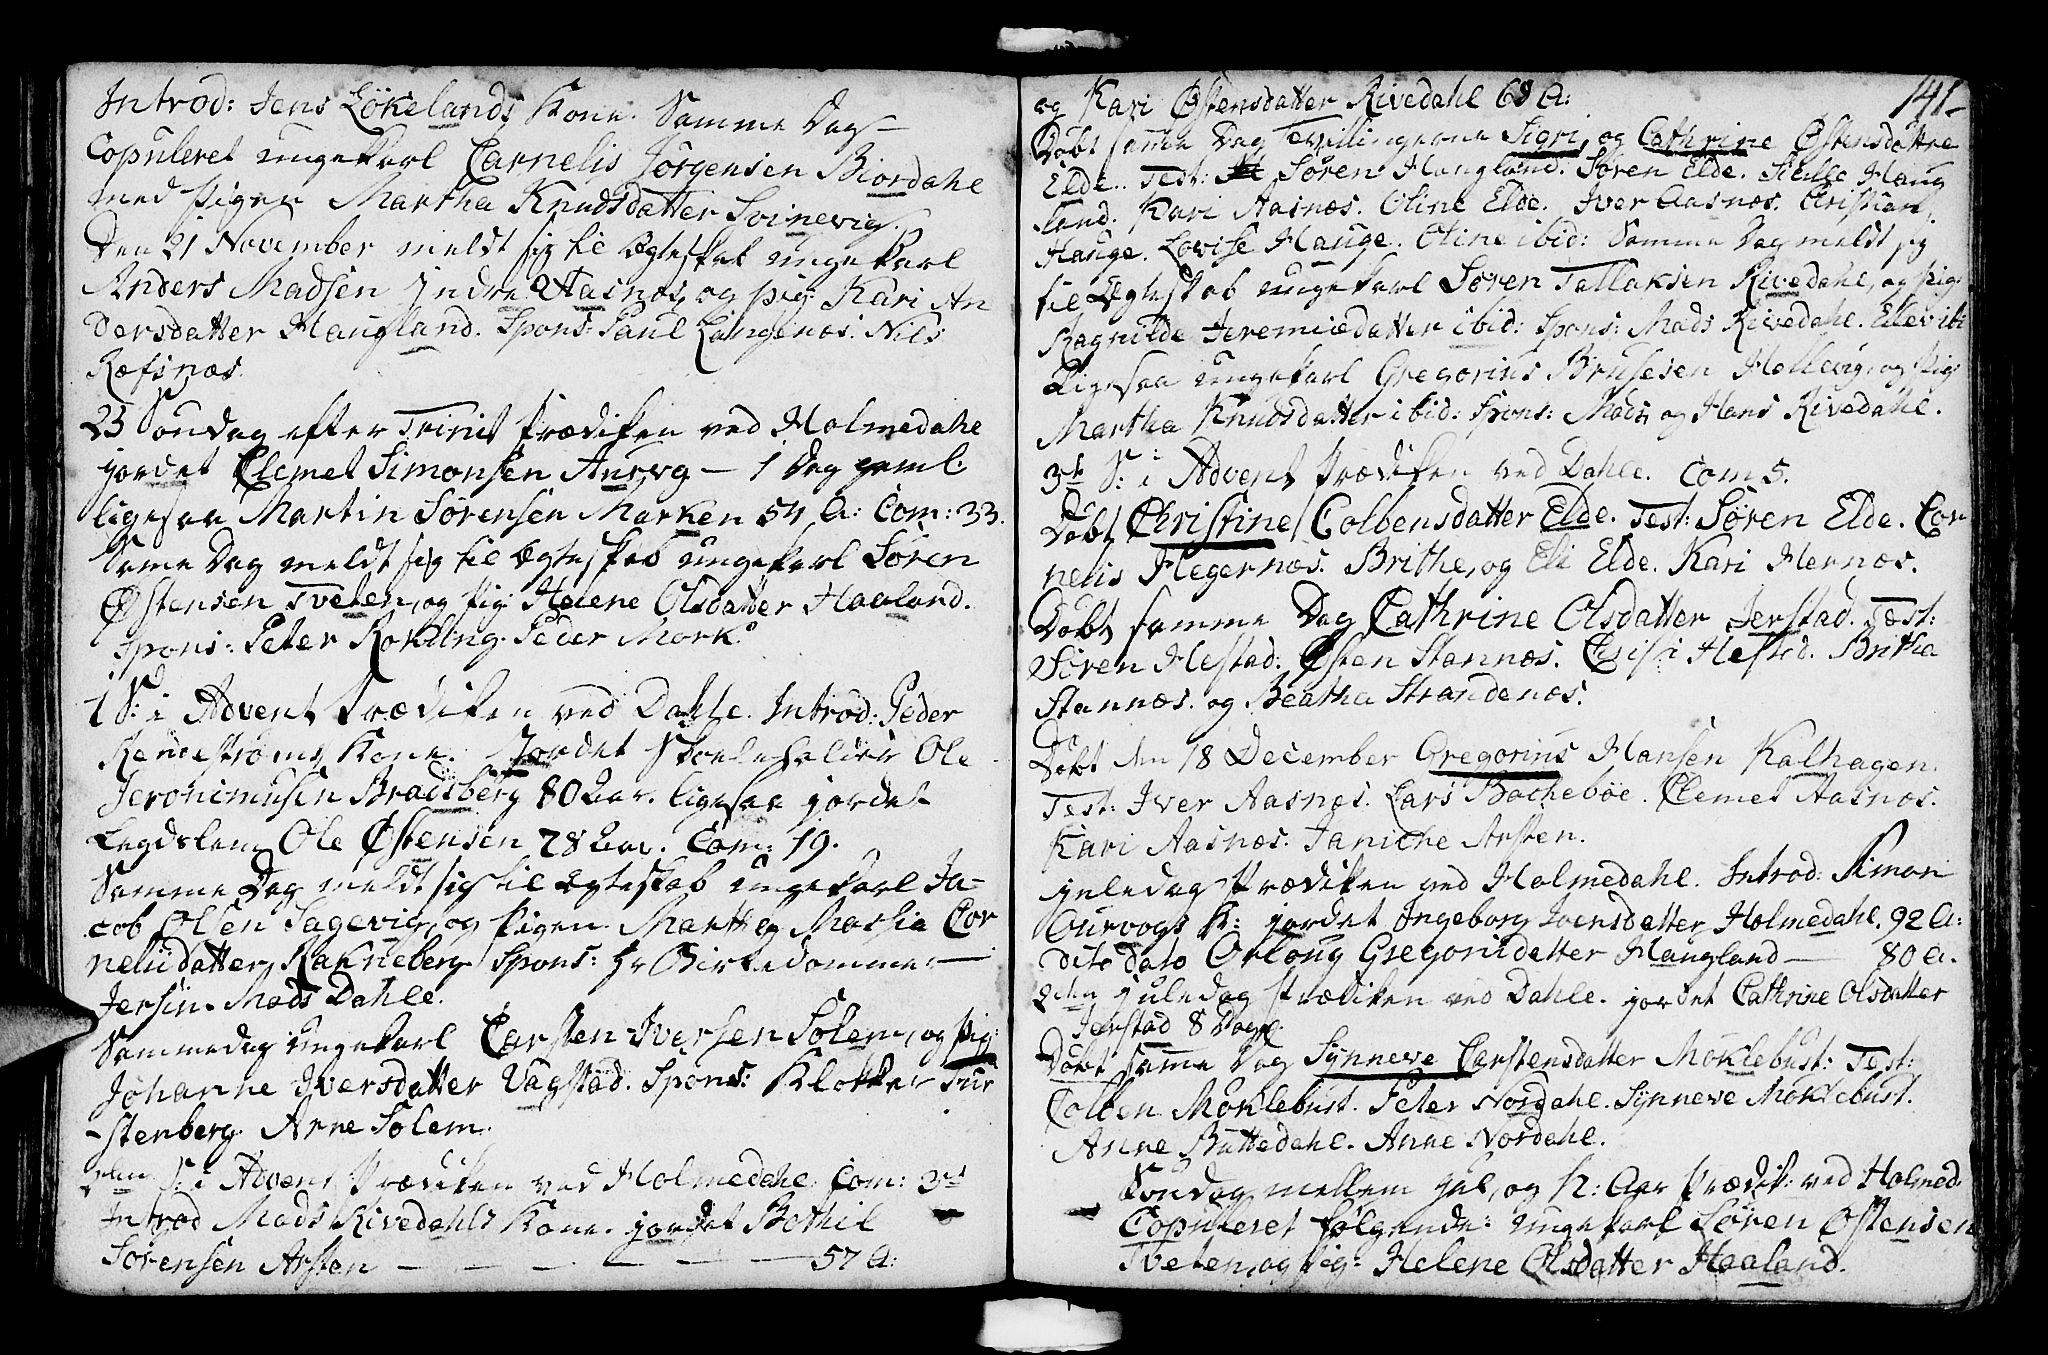 Introd: Jens Lökelands Kone. Samme Dag
Copuleret ungekarl Carnelis Jörgensen Biordahl
med pigen Martha Knudsdatter Svinevig.
Den 21 November meldt sig til Egteskab ungekarl
Anders Madsen Indre Aasnæs, og pig: Kari An
dersdatter Haugland. Spons: Paul Langenæs. Nils
Refsnæs.
23 Söndag efter Trinit prædiken ved Holmedahl
jordet Clemet Simonsen 1 Dag gaml.
ligesaa Martin Sörensen Marken 54 A: Com: 33.
Same Dag meldt sig til Egteskab ungekarl Sören
Østensen Tveten, og pig: Helene Olsdatter Haaland.
Spons: Peter Peder Mork.
1 S: i Advent prædiken ved Dahle. Introd: Peder
Kone. Jordet Skoleholder Ole
Jeronimusen 80 Aar. ligesaa jordet
Legdslem Ole Østensen 28 Aar. Com: 19.
Samme Dag meldt sig til Egteskab ungekarl Ja-
cob Olsen Sagevig, og pigen Marthe Maria Cor
nelidatter Rakneberg Spons: Hr Birkedommer
Jersin. Mads Dahle.
Sammedag ungekarl Carsten Iversen Solem, og pig:
Johanne Iversdatter Vagstad. Spons: Klokker Fur
-stenberg. Arne Solem.
2den S: i Advent prædiken ved Holmedahl. Com:
Introd Mads Rivedahls Kone. jordet Bothil
Sörensen Arsten — — — — — 57 A:
141-
og Kari Østensdatter Rivedahl A:
Döbt same Dag Tvillingerne Sigri, og Cathrine Østensdöttre
Elde. Test: Sören Haugland. Sören Elde. Haug
land. Kari Aasnæs. Oline Elde. Iver Aasnæs. Christian
Hauge. Lovise Hauge. Oline ibid: Samme Dag meldt sig
til Egteskab ungekarl Sören Tallaksen Rivedahl, og pig:
Ragnilde Jeremiædatter ibid: Spons: Mads Rivedahl. Ellev ibi
Ligesaa ungekarl Gregorius Brusesen Hellevig, og pig:
Martha Knudsdatter ibid: Spons: Mads, og Hans Rivedahl.
3de S: i Advent prædiken ved Dahle. Com 5.
Döbt Christine Colbensdatter Elde. Test: Sören Elde. Cor
nelis Hegernæs. Brithe, og Eli Elde. Kari Hernæs.
Döbt samme Dag Cathrine Olsdatter Jerstad. Test:
Sören Hestad. Østen Stannæs. Hestad. Britha
Stannæs. og Beatha Strandenæs.
Döbt den 18 December Gregorius Hansen Kalhagen.
Test: Iver Aasnæs. Lars Bacheböe. Clemet Aasnæs.
Kari Aasnæs. Janiche Arsten.
juledag prædiken ved Holmedahl. Introd: Simon
Ourvogs K: jordet Ingeborg Iversdatter Holmedahl. 92 A:
dito dato Orloug Gregoridatter Haugland — 80 A.
2den juledag prædiken ved Dahle. jordet Cathrine Olsdatter
Jerstad 8 Dage.
Döbt same Dag Synneve Carstensdatter Moklebust: Test:
Colben Moklebust. Peter Nordahl. Synneve Moklebust.
Anne Buttedahl. Anne Nordahl.
Söndag mellem Jul, og N: Aar prædik: ved Holmed.
Copuleret fölgende: ungekarl Sören Østensen
Tveten, og pig: Helene Olsdatter Haaland.